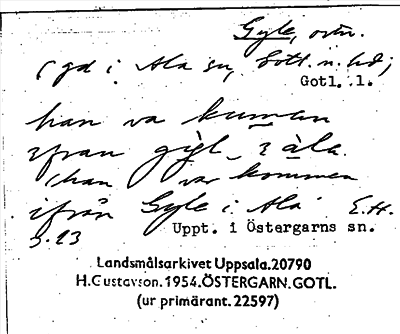 Gyle, ortn.
(gd i Ala sn, Gotl. n. hd;
Gotl. l.
han va kuman
ifran gyl_ i ala.
(han var kommen
ifrån Gyle i Ala E.H.
S. 23 Uppt. i Östergarns sn.
Landsmålsarkivet Uppsala. 20790
H. Gustavson. 1954. ÖSTERGARN. GOTL.
(ur primärant. 22597)